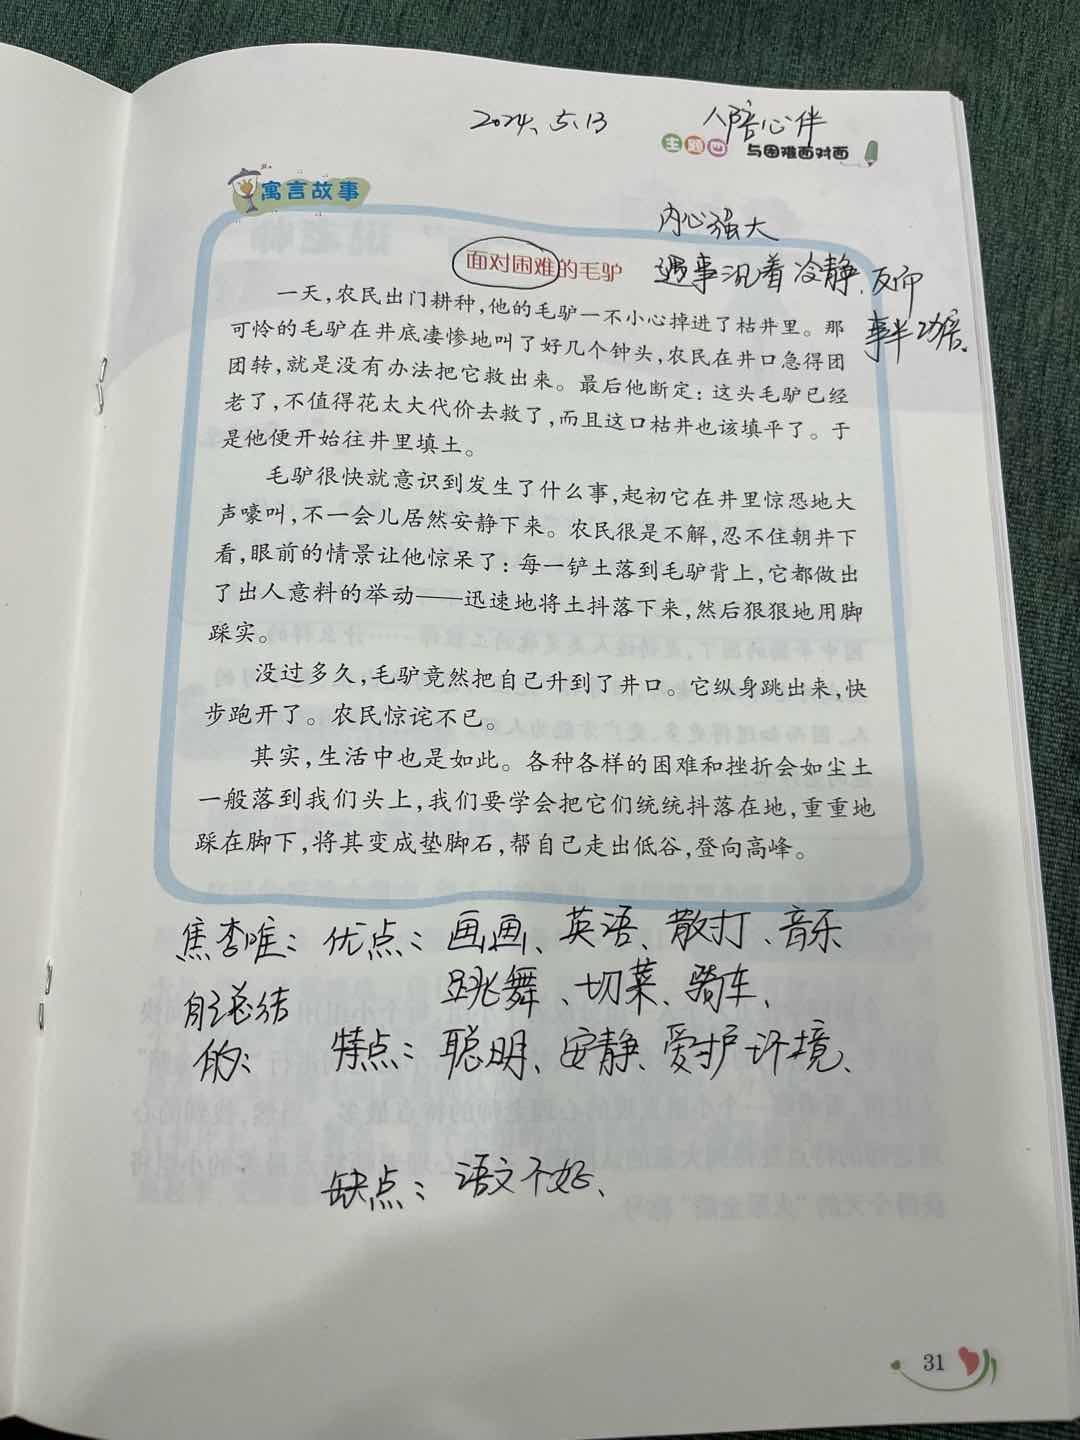 2024.5.13
人陪心伴
主题四 与困难面对面
寓言故事
内心强大
遇事沉着冷静、反而
事半功倍、
面对困难的毛驴
一天,农民出门耕种,他的毛驴一不小心掉进了枯井里。那
可怜的毛驴在井底凄惨地叫了好几个钟头,农民在井口急得团
团转,就是没有办法把它救出来。最后他断定:这头毛驴已经
老了,不值得花太大代价去救了,而且这口枯井也该填平了。于
是他便开始往井里填土。
毛驴很快就意识到发生了什么事,起初它在井里惊恐地大
声嚎叫,不一会儿居然安静下来。农民很是不解,忍不住朝井下
看,眼前的情景让他惊呆了:每一铲土落到毛驴背上,它都做出
了出人意料的举动——迅速地将土抖落下来,然后狠狠地用脚
踩实。
没过多久,毛驴竟然把自己升到了井口。它纵身跳出来,快
步跑开了。农民惊诧不已。
其实,生活中也是如此。各种各样的困难和挫折会如尘土
一般落到我们头上,我们要学会把它们统统抖落在地,重重地
踩在脚下,将其变成垫脚石,帮自己走出低谷,登向高峰。
焦李唯: 优点: 画画、英语、散打、音乐
跳舞、切菜、骑车、
自己总结
的: 特点: 聪明、安静、爱护环境、
缺点: 语文不好、
31